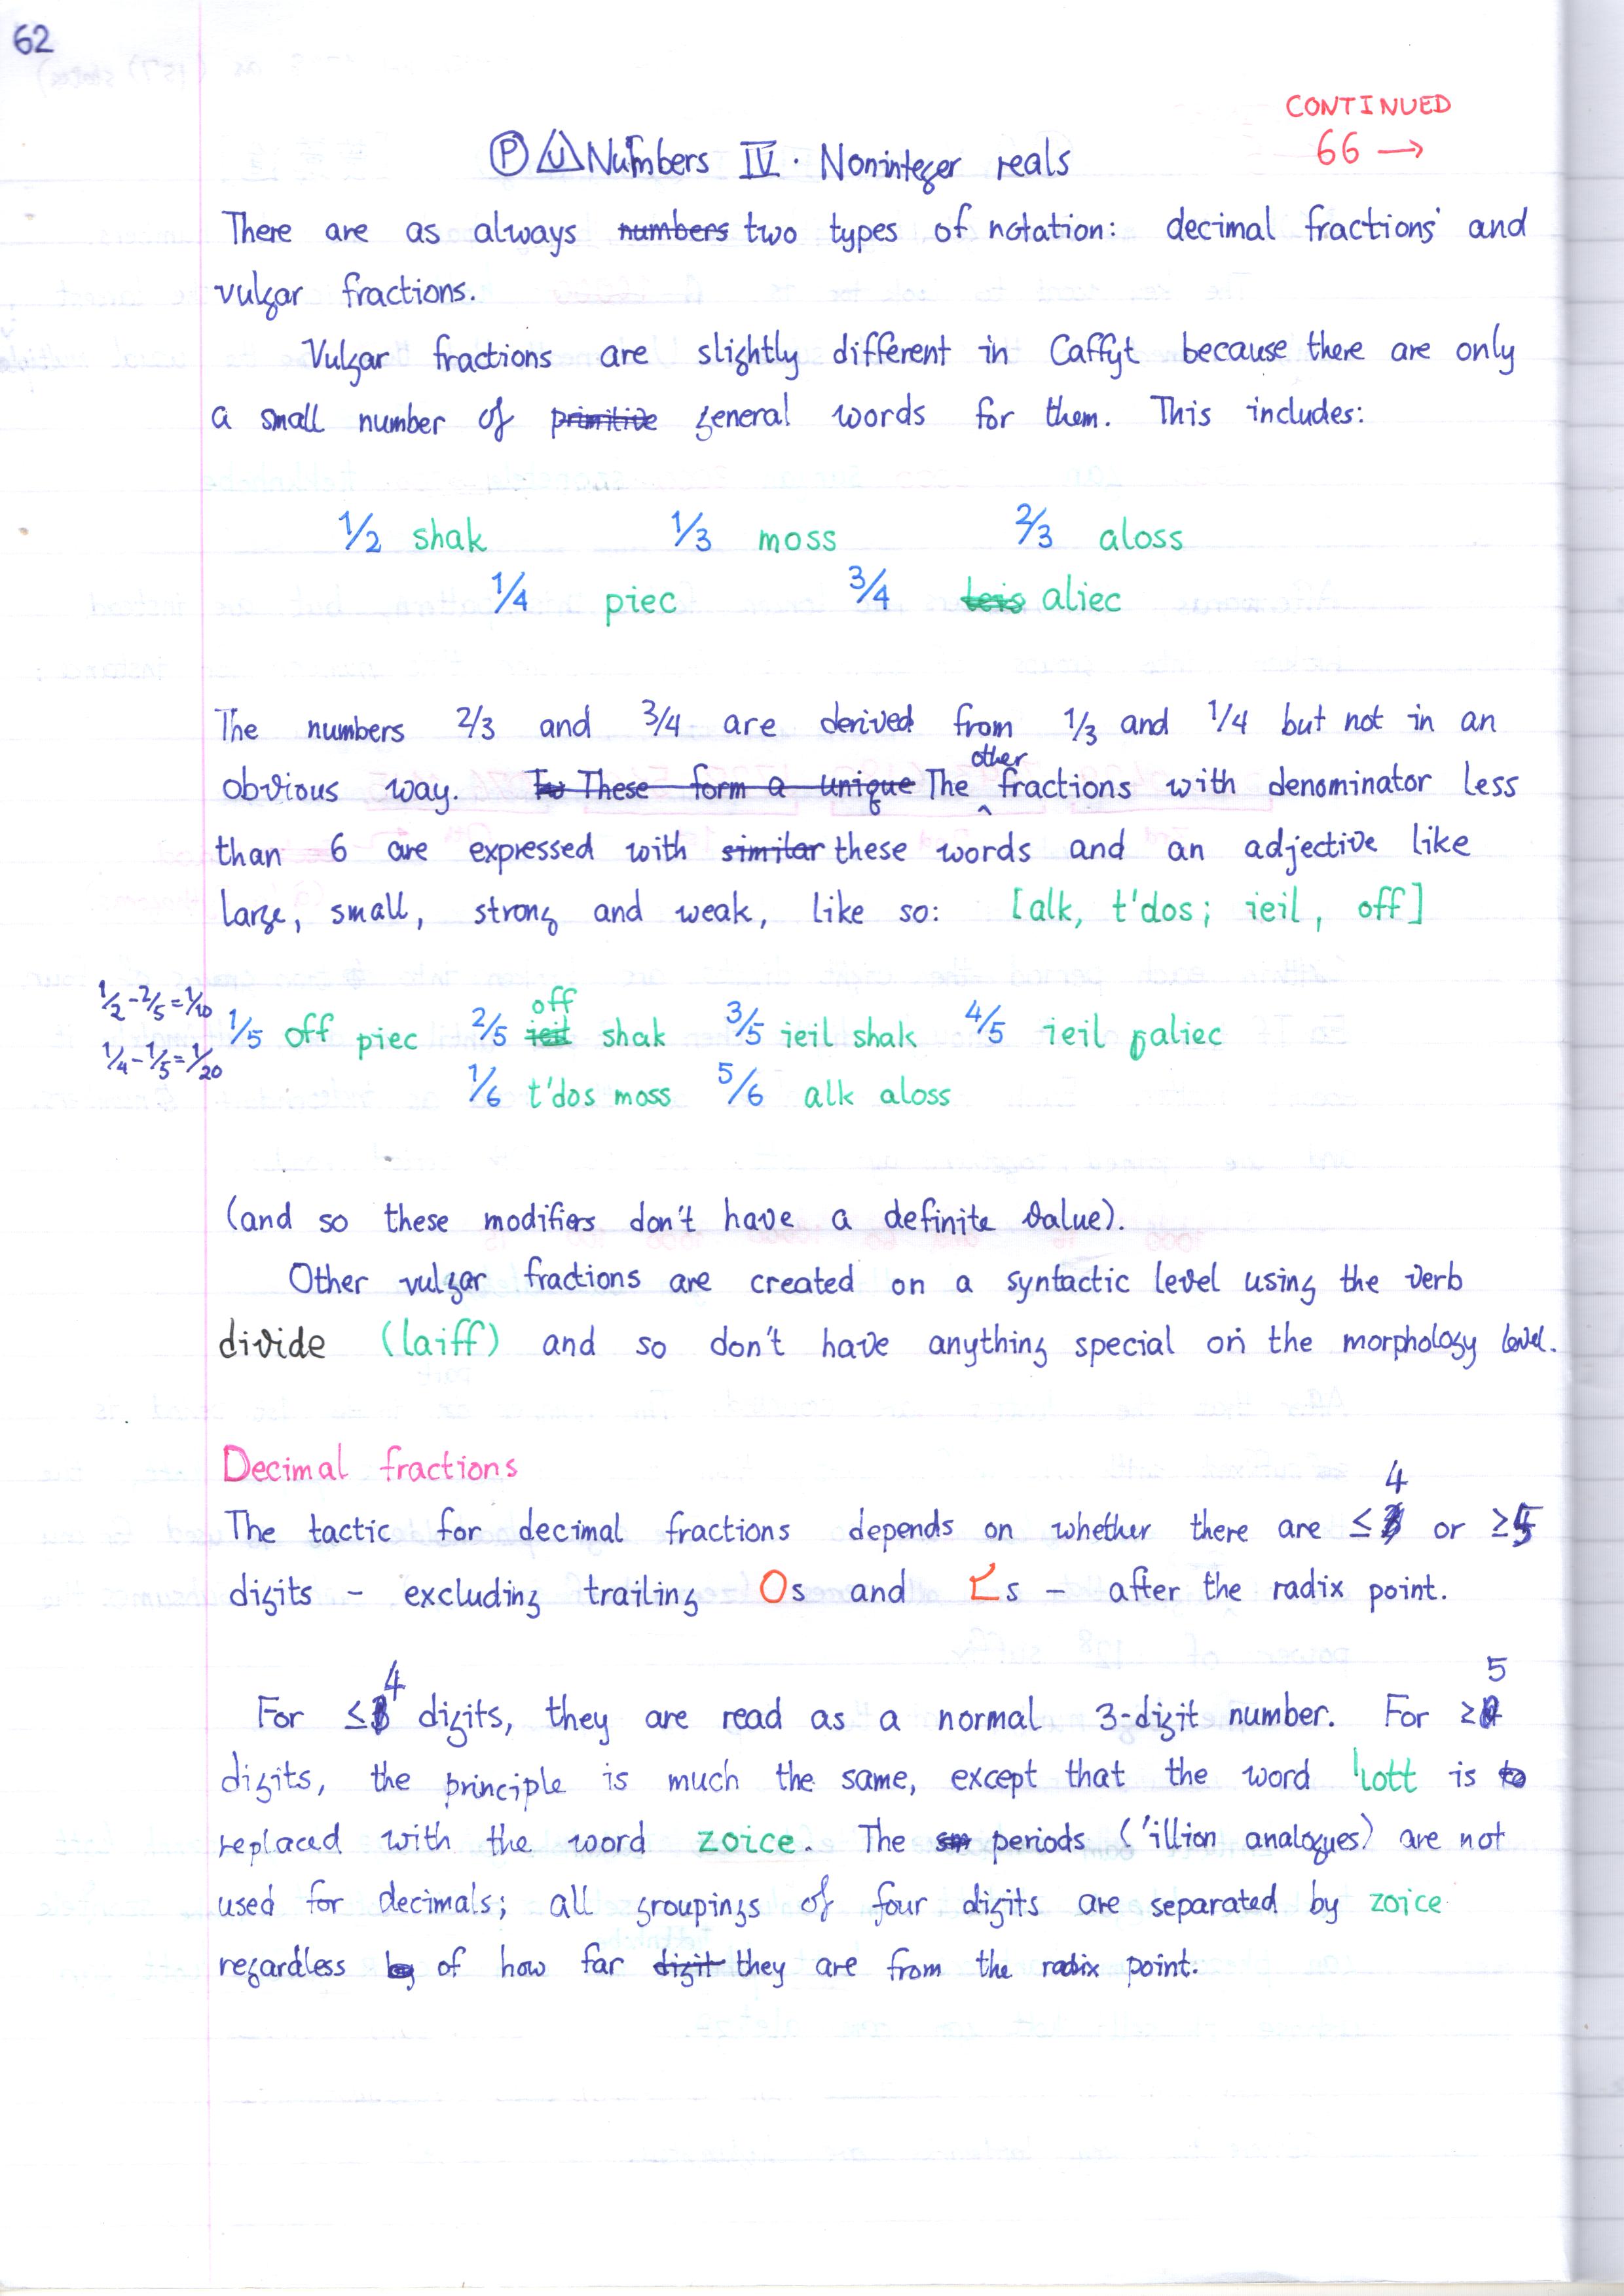 62
CONTINUED
66 →
Ⓟ Numbers IV. Noninteger reals
There are as always numbers two types of notation: decimal fractions and
vulgar fractions.
Vulgar fractions are slightly different in Caffyt because there are only
a small number of primitive general words for them. This includes:
1/2 shak 1/3 moss 2/3 aloss
1/4 piec 3/4 teis aliec
The numbers 2/3 and 3/4 are derived from 1/3 and 1/4 but not in an
other
obvious way. To These form a unique The ^ fractions with denominator less
than 6 are expressed with similar these words and an adjective like
large, small, strong and weak, like so: [alk, t'dos; ieil, off]
1/2-2/5=1/10
1/4-1/5=1/20
off
1/5 off piec 2/5 ieil shak 3/5 ieil shak 4/5 ieil aliec
1/6 t'dos moss 5/6 alk aloss
(and so these modifiers don't have a definite value).
Other vulgar fractions are created on a syntactic level using the verb
divide (laiff) and so don't have anything special on the morphology level.
Decimal fractions
4
The tactic for decimal fractions depends on whether there are ≤3 or ≥5
digits - excluding trailing 0s and s - after the radix point.
4 5
For ≤ digits, they are read as a normal 3-digit number. For ≥
digits, the principle is much the same, except that the word lott is to
replaced with the word zoice. The sm periods ('illion analogues) are not
used for decimals; all groupings of four digits are separated by zoice
regardless by of how far digit they are from the radix point.